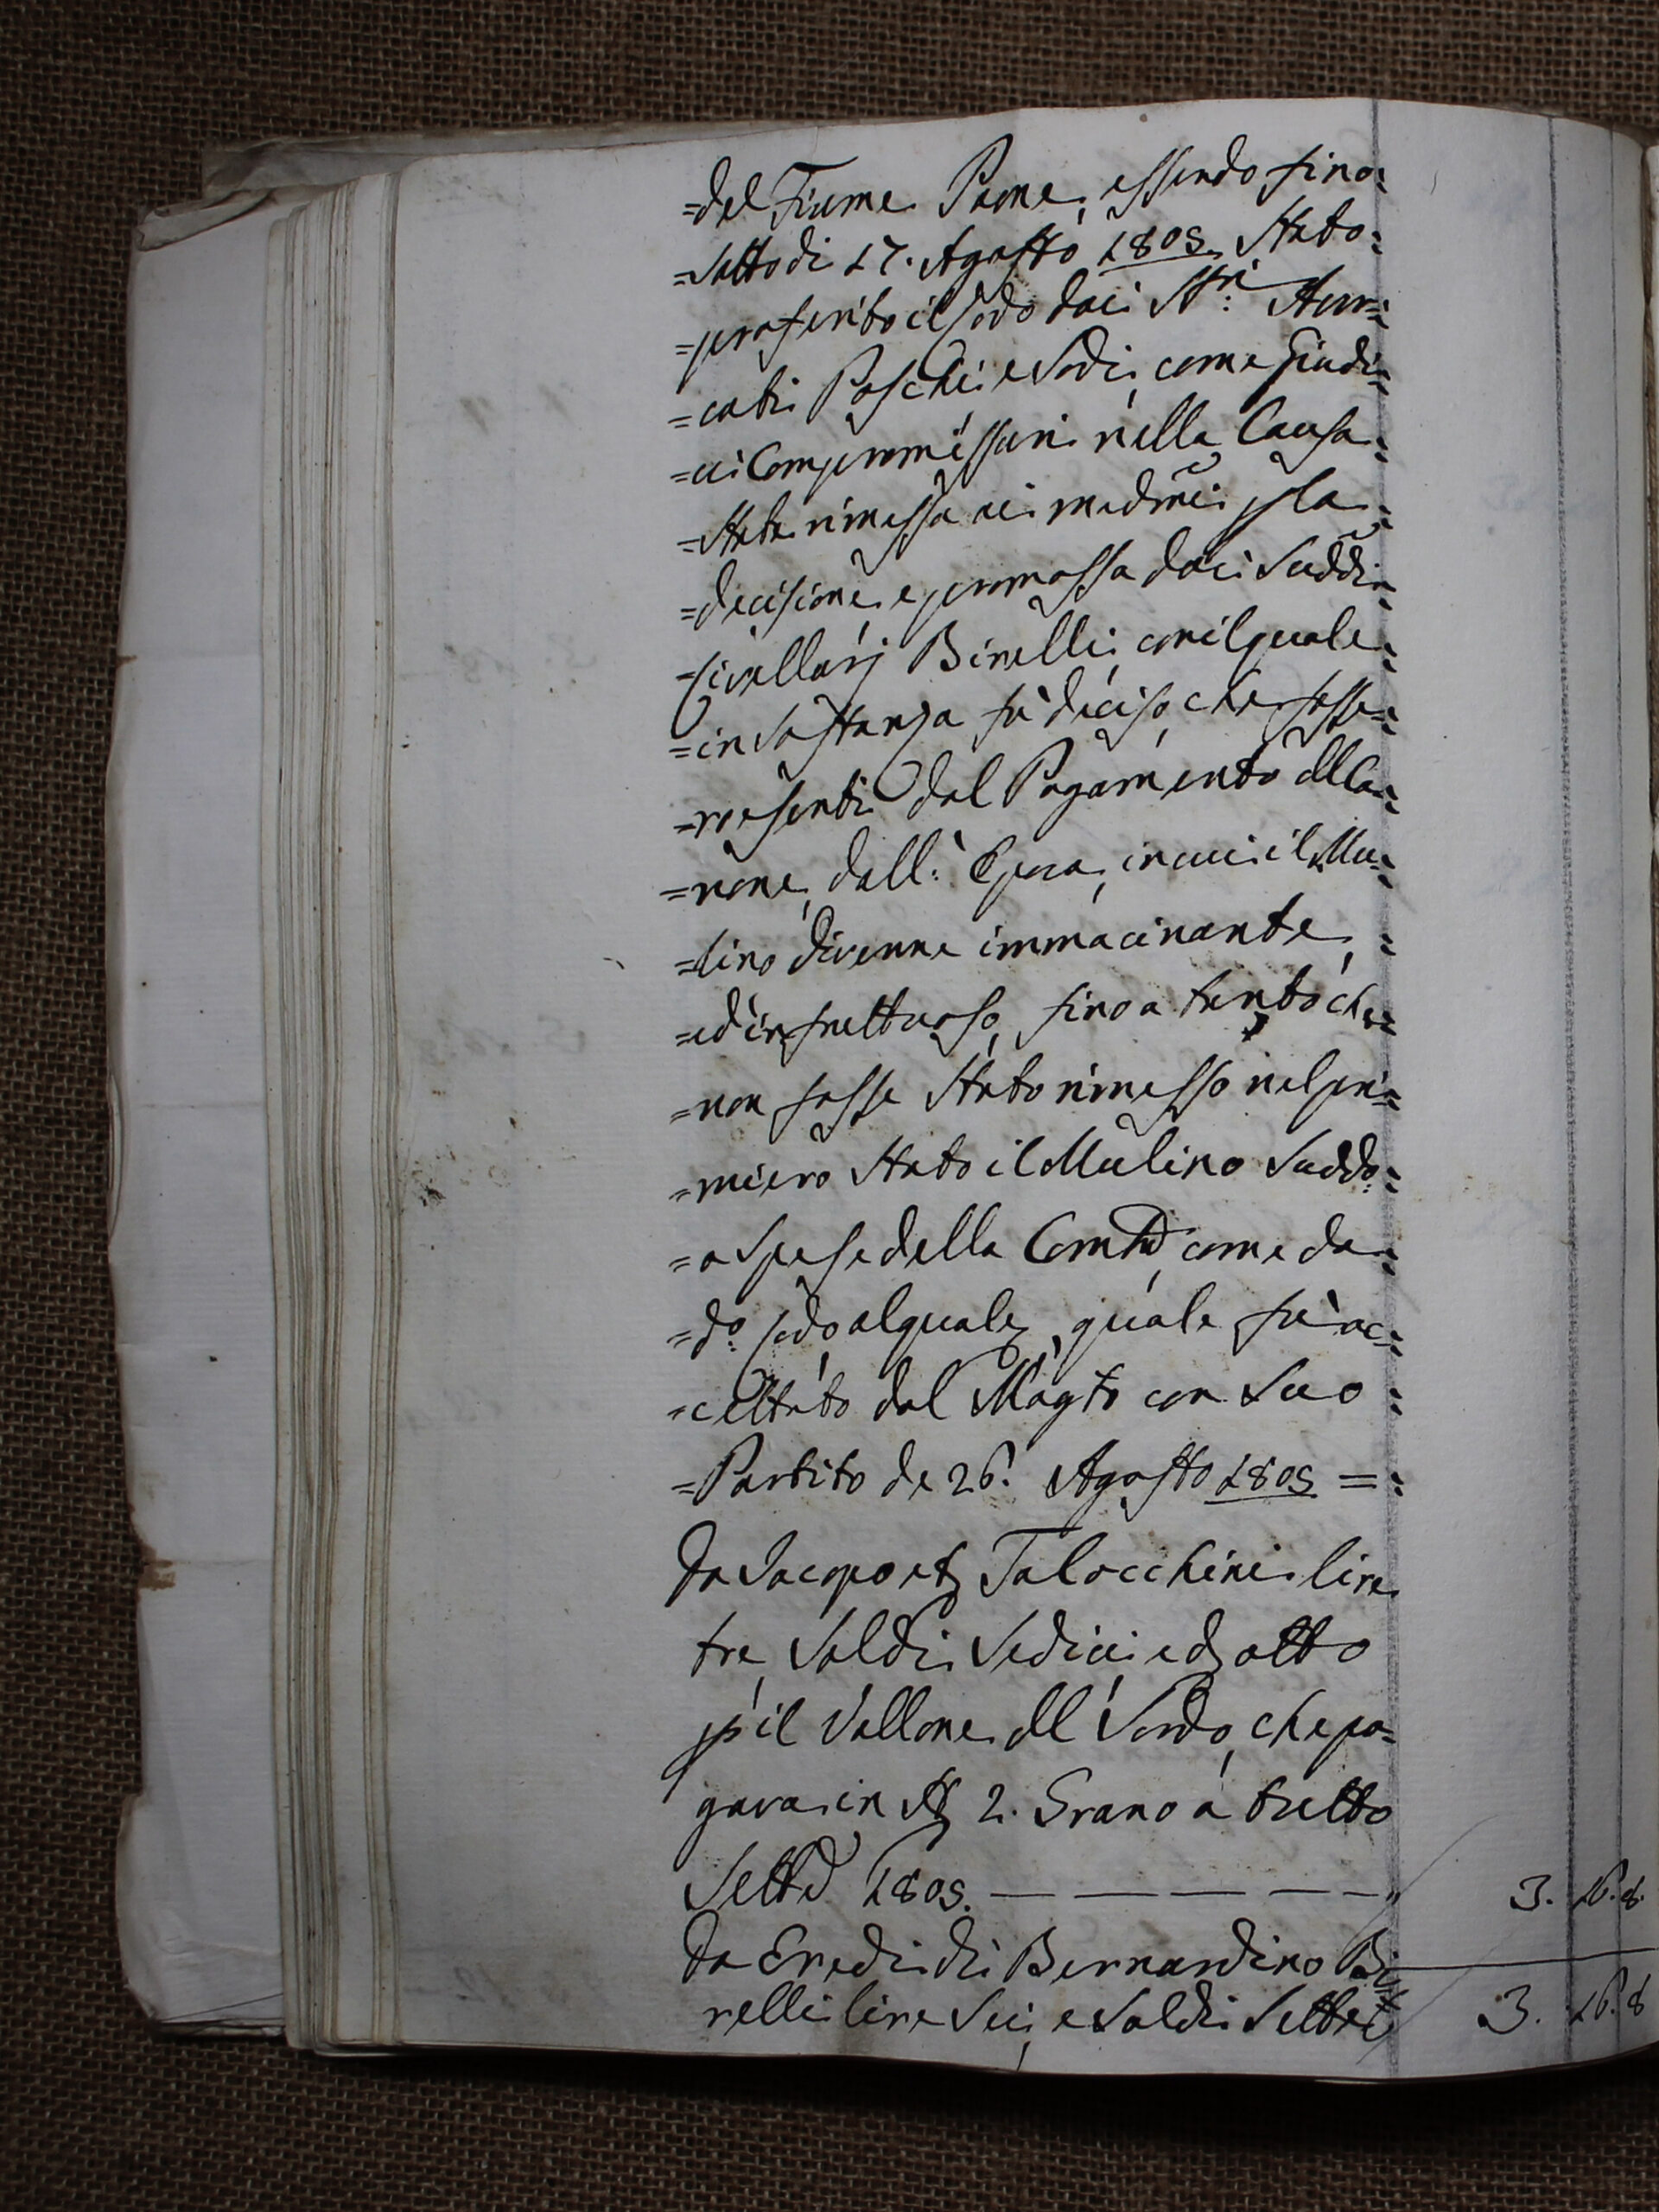 =del Fiume Pome, essendo fino=
=Sotto di 17. Agosto 1805. Stato=
=proferito il Lodo dai SSri: Avvo=
=cati Paschi e Sodi, come Giudi=
=ci Compromissari nella Causa=
=Stata rimessa ai medmi p la=
=decisione, e promossa dai Suddi=
=livellarj Birelli, con il quale=
=in Sostanza fù deciso, che fosse=
=ro esenti dal Pagamento dl Ca=
=none, dall: Epoca, in cui il Mu=
=lino divenne immacinante,=
=ed infruttuoso, fino a tanto che=
=non fosse Stato rimesso nel pri=
=miero Stato il Mulino Suddo:=
=a Spese della Comtà, come da=
=do: Lodo al quale, quale fù ac=
=cettato dal Magto con Suo=
=Partito de 26. Agosto 1805 ==
Da Jacopo et Talocchini lire
tre, Soldi Sedici, e d otto
p il Vallone dl Sordo, che pa=
gava in St 2. Grano a tutto
Settd 1805. — — — — — "   3. 16. 8.
Da Eredi di Bernardino Bi
relli lire Sei, e Soldi Sette
3. 16. 8